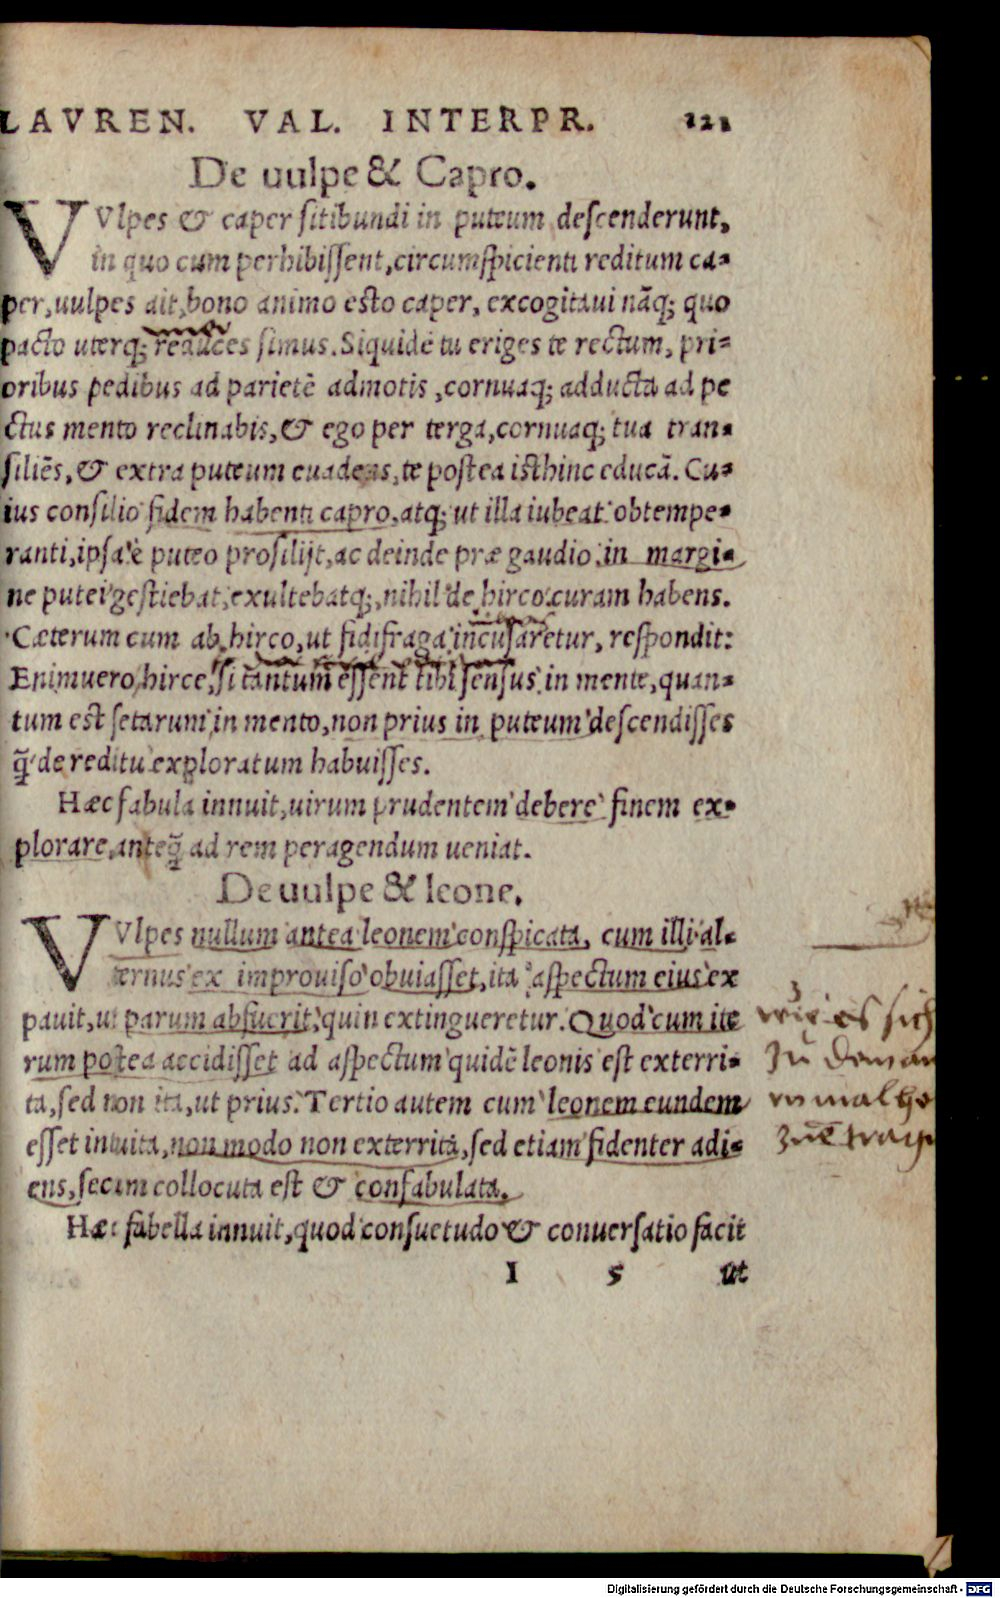 LAVREN. VAL. INTERPR. 121
De uulpe & Capro.
VVlpes & caper sitibundi in puteum descenderunt,
in quo cum perhibissent, circumspicienti reditum ca-
per, uulpes ait, bono animo esto caper, excogitaui nãq; quo
pacto uterq; reduces simus. Siquidē tu eriges te rectum, pri-
oribus pedibus ad parietē admotis, cornuaq; adducta ad pe
ctus mento reclinabis, & ego per terga, cornuaq; tua tran-
siliēs, & extra puteum euadens, te postea isthinc educã. Cu-
ius consilio fidem habenti capro, atq; ut illa iubeat obtempe-
ranti, ipsa è puteo prosilijt, ac deinde præ gaudio in margi-
ne putei gestiebat, exultebatq;, nihil de hirco curam habens.
Cæterum cum ab hirco, ut fidifraga incusaretur, respondit:
Enimuero hirce, si tantum essent tibi sensus in mente, quan-
tum est setarum in mento, non prius in puteum descendisses
q̃ de reditu exploratum habuisses.
Hæc fabula innuit, uirum prudentem debere finem ex-
plorare, anteq̃ ad rem peragendum ueniat.
De uulpe & leone.
VVlpes nullum antea leonem conspicata, cum illi al-
ternus ex improuiso obuiasset, ita aspectum eius ex
pauit, ut parum absuerit, quin extingueretur. Quod cum ite
rum postea accidisset ad aspectum quidē leonis est exterri-
ta, sed non ita, ut prius. Tertio autem cum leonem eundem
esset intuita, non modo non exterrita, sed etiam fidenter adi-
ens, secum collocuta est & confabulata.
Hæc fabella innuit, quod consuetudo & conuersatio facit
I 5 ut
wie es sich
zu dem an
Digitalisierung gefördert durch die Deutsche Forschungsgemeinschaft - DFG